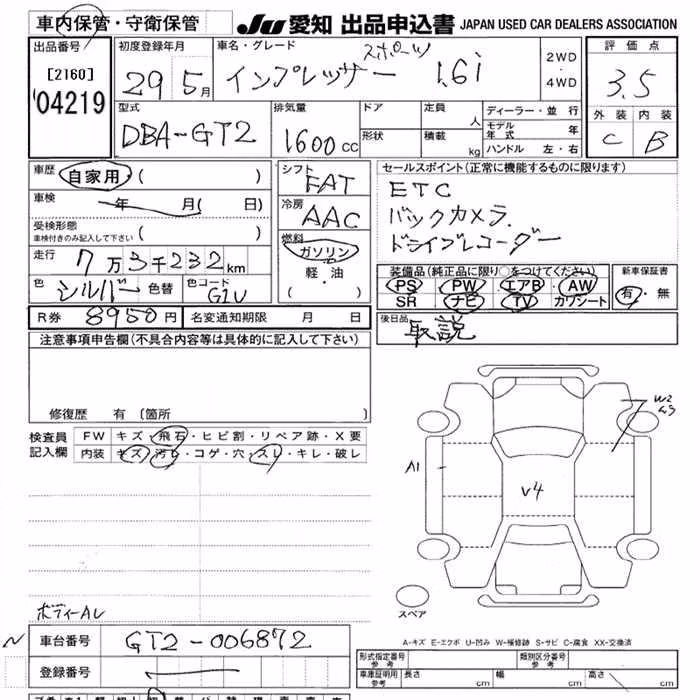 車内保管・守衛保管 JU 愛知 出品申込書 JAPAN USED CAR DEALERS ASSOCIATION
出品番号 初度登録年月 車名・グレード 2WD・4WD 評価点
[2160] 04219 29 5月 インプレッサー スポーツ 1.6i 3.5
型式 排気量 ドア 定員 人 ディーラー・並行 外装 内装
DBA-GT2 1600cc 形状 積載 kg モデル年式 年 C B
ハンドル 左・右
車歴 自家用・( ) シフト FAT セールスポイント(正常に機能するものに限ります)
車検 年 月( 日) 冷房 AAC ETC
受検形態 ( ) バックカメラ.
車検付きのみ記入して下さい 燃料 ガソリン・軽・油・( ) ドライブレコーダー
走行 7万3千232km 装備品(純正品に限り○をつけてください) 新車保証書
色 シルバー 色替 色コード G1U PS・PW・エアB・AW 有・無
SR ナビ TV カワシート
R券 8950円 名変通知期限 月 日 後日品 取説
注意事項申告欄(不具合内容等は具体的に記入して下さい)
修復歴 有〔箇所 〕
検査員記入欄 FW キズ・飛石・ヒビ割・リペア跡・X要
内装 キズ・汚レ・コゲ・穴・スレ・キレ・破レ
W2
A1
V4
スペア
ボディーAL
A-キズ E-エクボ U-凹み W-補修跡 S-サビ C-腐食 XX-交換済
N 車台番号 GT2-006872 形式指定番号 参考 類別区分番号 参考
登録番号 車庫証明用 参考 長さ cm 幅 cm 高さ cm